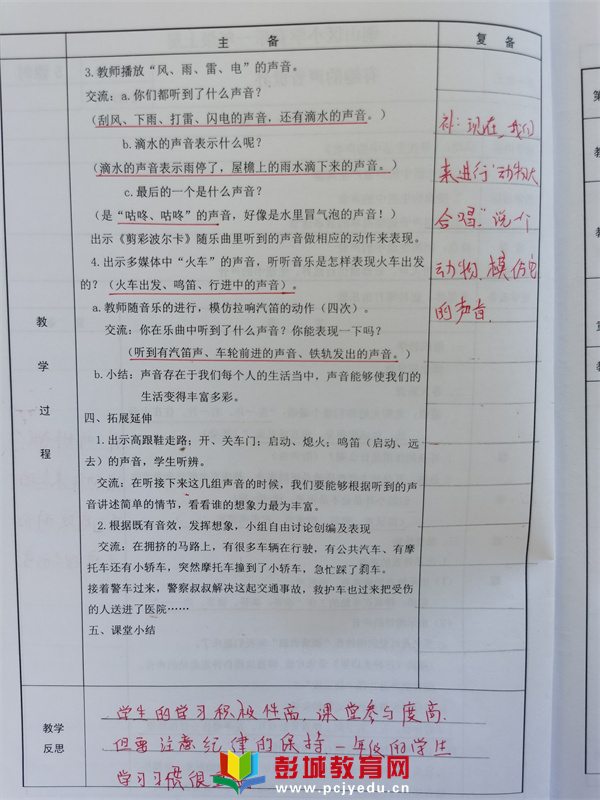 主 备
复 备
3.教师播放“风、雨、雷、电”的声音。
交流：a.你们都听到了什么声音？
（刮风、下雨、打雷、闪电的声音，还有滴水的声音。）
b.滴水的声音表示什么呢？
（滴水的声音表示雨停了，屋檐上的雨水滴下来的声音。）
c.最后的一个是什么声音？
（是“咕咚、咕咚”的声音，好像是水里冒气泡的声音！）
出示《剪彩波尔卡》随乐曲里听到的声音做相应的动作来表现。
4.出示多媒体中“火车”的声音，听听音乐是怎样表现火车出发
的？（火车出发、鸣笛、行进中的声音）。
a.教师随音乐的进行，模仿拉响汽笛的动作（四次）。
交流：你在乐曲中听到了什么声音？你能表现一下吗？
（听到有汽笛声、车轮前进的声音、铁轨发出的声音。）
b.小结：声音存在于我们每个人的生活当中，声音能够使我们的
生活变得丰富多彩。
四、拓展延伸
1.出示高跟鞋走路；开、关车门；启动、熄火；鸣笛（启动、远
去）的声音，学生听辨。
交流：在听接下来这几组声音的时候，我们要能够根据听到的声
音讲述简单的情节，看看谁的想象力最为丰富。
2.根据既有音效，发挥想象，小组自由讨论创编及表现
交流：在拥挤的马路上，有很多车辆在行驶，有公共汽车、有摩
托车还有小轿车，突然摩托车撞到了小轿车，急忙踩了刹车。
接着警车过来，警察叔叔解决这起交通事故，救护车也过来把受伤
的人送进了医院……
五、课堂小结
教
学
过
程
补：现在，我们
来进行“动物大
合唱”，说一个
动物，模仿它
的声音。
教学
反思
学生的学习积极性高，课堂参与度高，
但要注意纪律的保持，一年级的学生
学习习惯很
彭城教育网
www.pcjyedu.cn
第
教